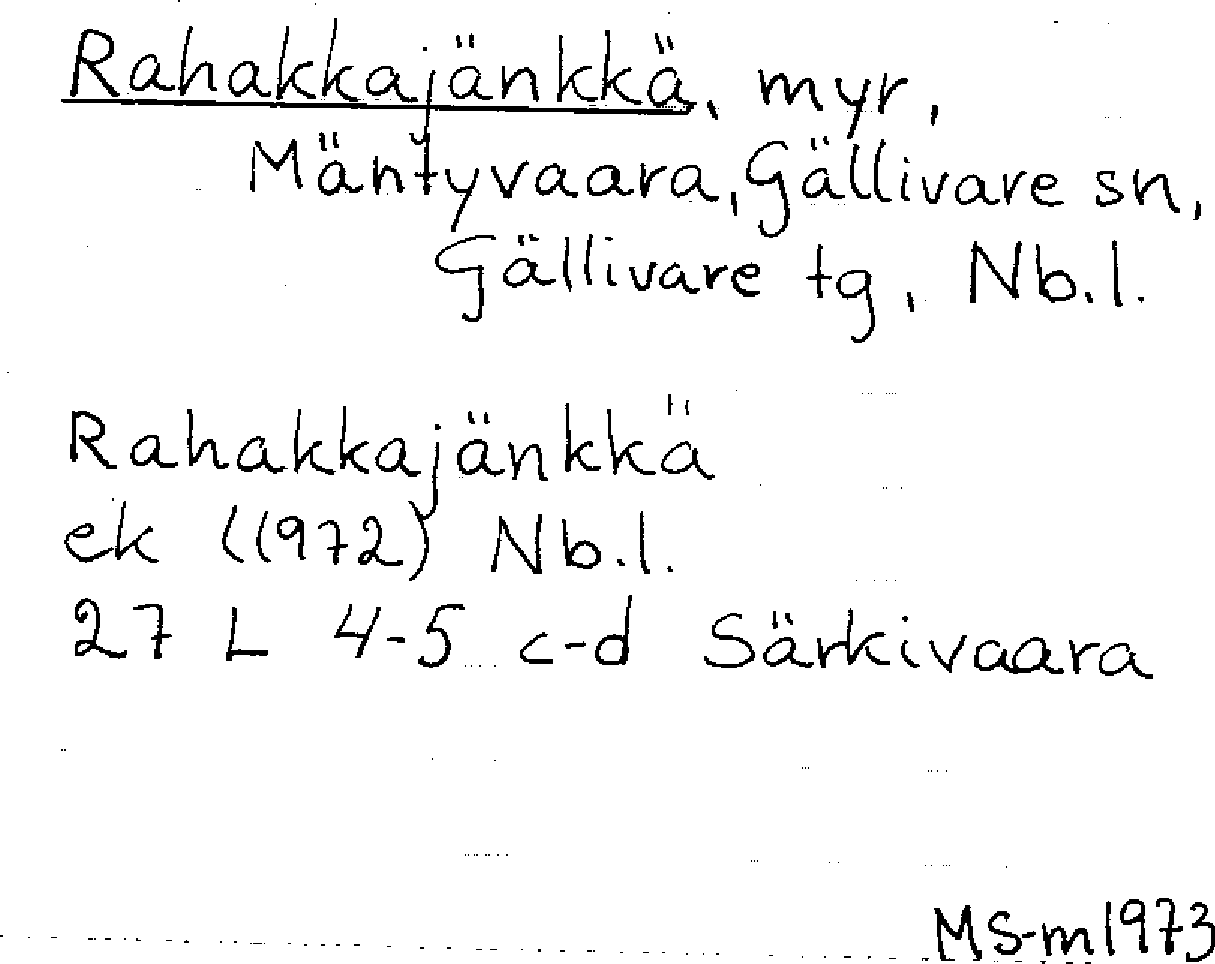 Rahakkajänkkä, myr,
Mäntyvaara, Gällivare sn,
Gällivare tg, Nb.l.
Rahakkajänkkä
ek (1972) Nb.l.
27 L 4-5 c-d Särkivaara
MS-m 1973